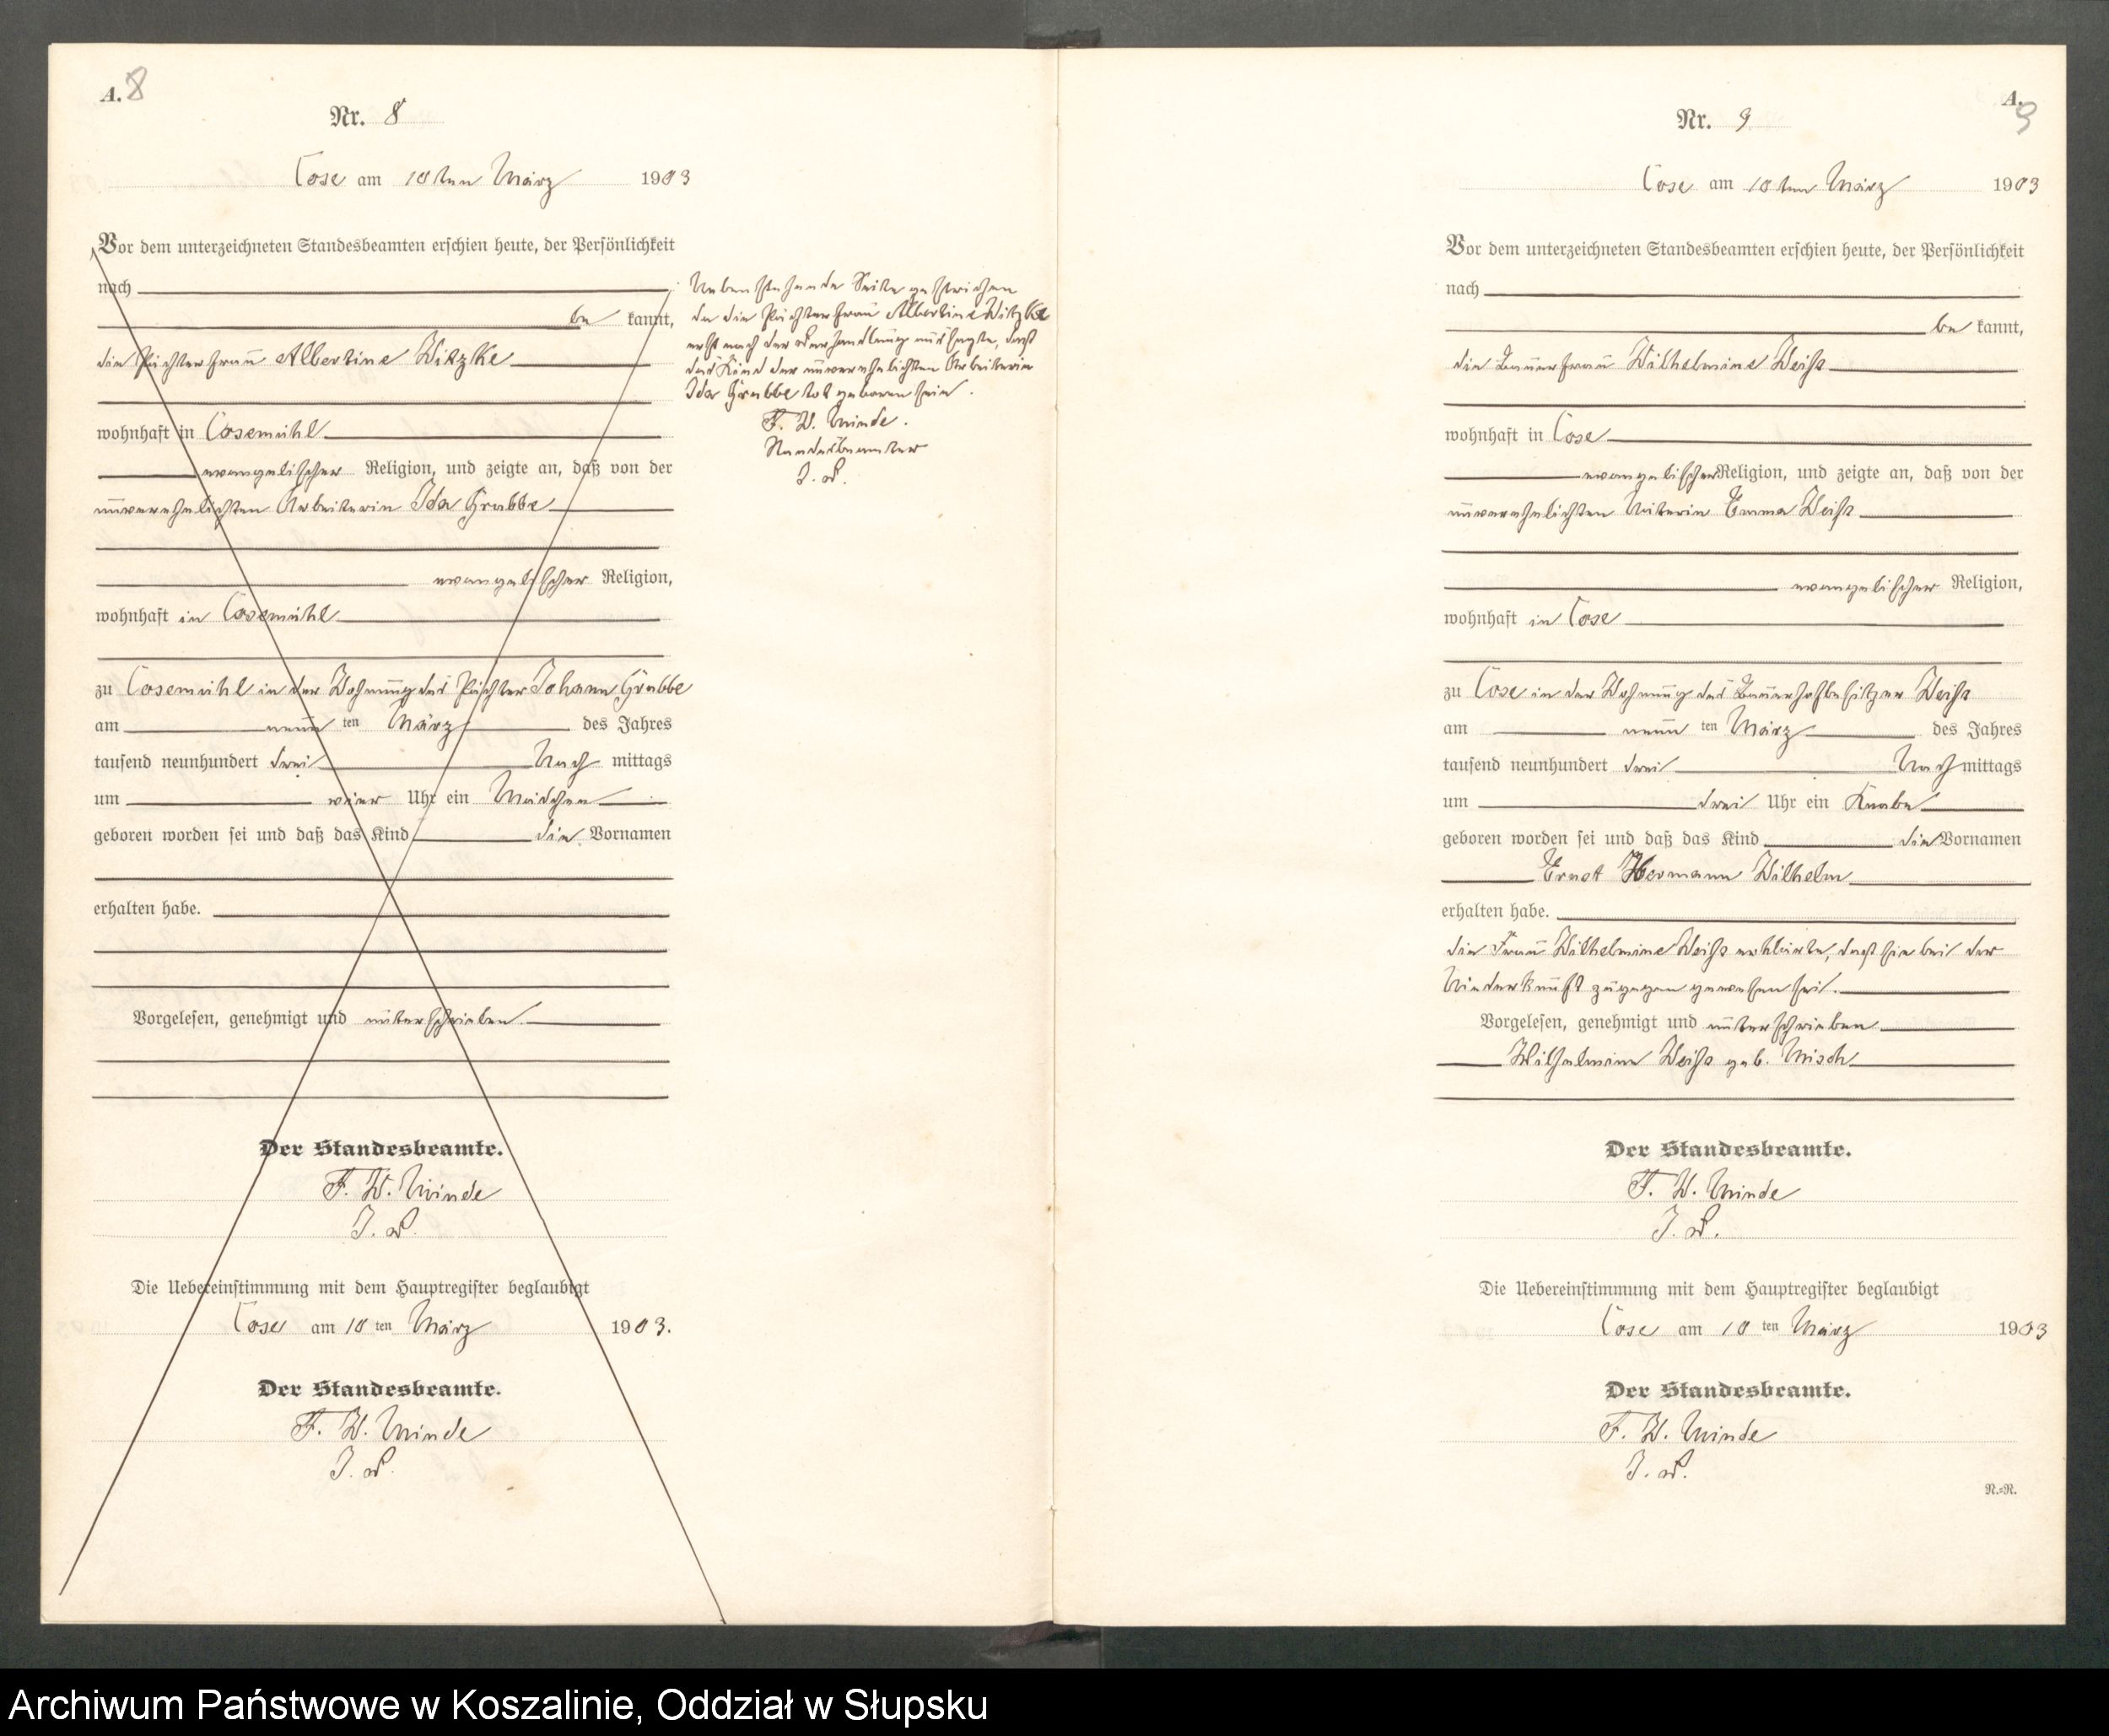 A. 8
Nr. 8
Cose am 10ten März 1903
Vor dem unterzeichneten Standesbeamten erschien heute, der Persönlichkeit
nach
be kannt,
die Pächterfrau Albertine Witzke
wohnhaft in Cosemühl
evangelischer Religion, und zeigte an, daß von der
unverehelichten Arbeiterin Ida Grubbe
evangelischer Religion,
wohnhaft in Cosemühl
zu Cosemühl in der Wohnung des Pächter Johann Grubbe
am neun ten März des Jahres
tausend neunhundert drei Nach mittags
um vier Uhr ein Mädchen
geboren worden sei und daß das Kind die Vornamen
erhalten habe.
Vorgelesen, genehmigt und unterschrieben.
Der Standesbeamte.
F. W. Minde
I. V.
Die Uebereinstimmung mit dem Hauptregister beglaubigt
Cose am 10 ten März 1903.
Der Standesbeamte.
F. W. Minde
I. V.
Nebenstehende Seite gestrichen
da die Pächterfrau Albertine Witzke
erst nach der Verhandlung aussagte, daß
das Kind der unverehelichten Arbeiterin
Ida Grubbe tot geboren sein.
F. W. Minde.
Standesbeamter
I. V.
A. 9
Nr. 9
Cose am 10ten März 1903
Vor dem unterzeichneten Standesbeamten erschien heute, der Persönlichkeit
nach
be kannt,
die Bauerfrau Wilhelmine Weiß
wohnhaft in Cose
evangelischer Religion, und zeigte an, daß von der
unverehelichten Emma Weiß
evangelischer Religion,
wohnhaft in Cose
zu Cose in der Wohnung des Bauerhofbesitzer Weiß
am neun ten März des Jahres
tausend neunhundert drei Nach mittags
um drei Uhr ein Knabe
geboren worden sei und daß das Kind die Vornamen
Ernst Hermann Wilhelm
erhalten habe.
die Frau Wilhelmine Weiß erklärte, daß sie bei der
Niederkunft zugegen gewesen sei.
Vorgelesen, genehmigt und unterschrieben
Wilhelmine Weiß geb. Misch
Der Standesbeamte.
F. W. Minde
I. V.
Die Uebereinstimmung mit dem Hauptregister beglaubigt
Cose am 10 ten März 1903
Der Standesbeamte.
F. W. Minde
I. V.
R.=R.
Archiwum Państwowe w Koszalinie, Oddział w Słupsku